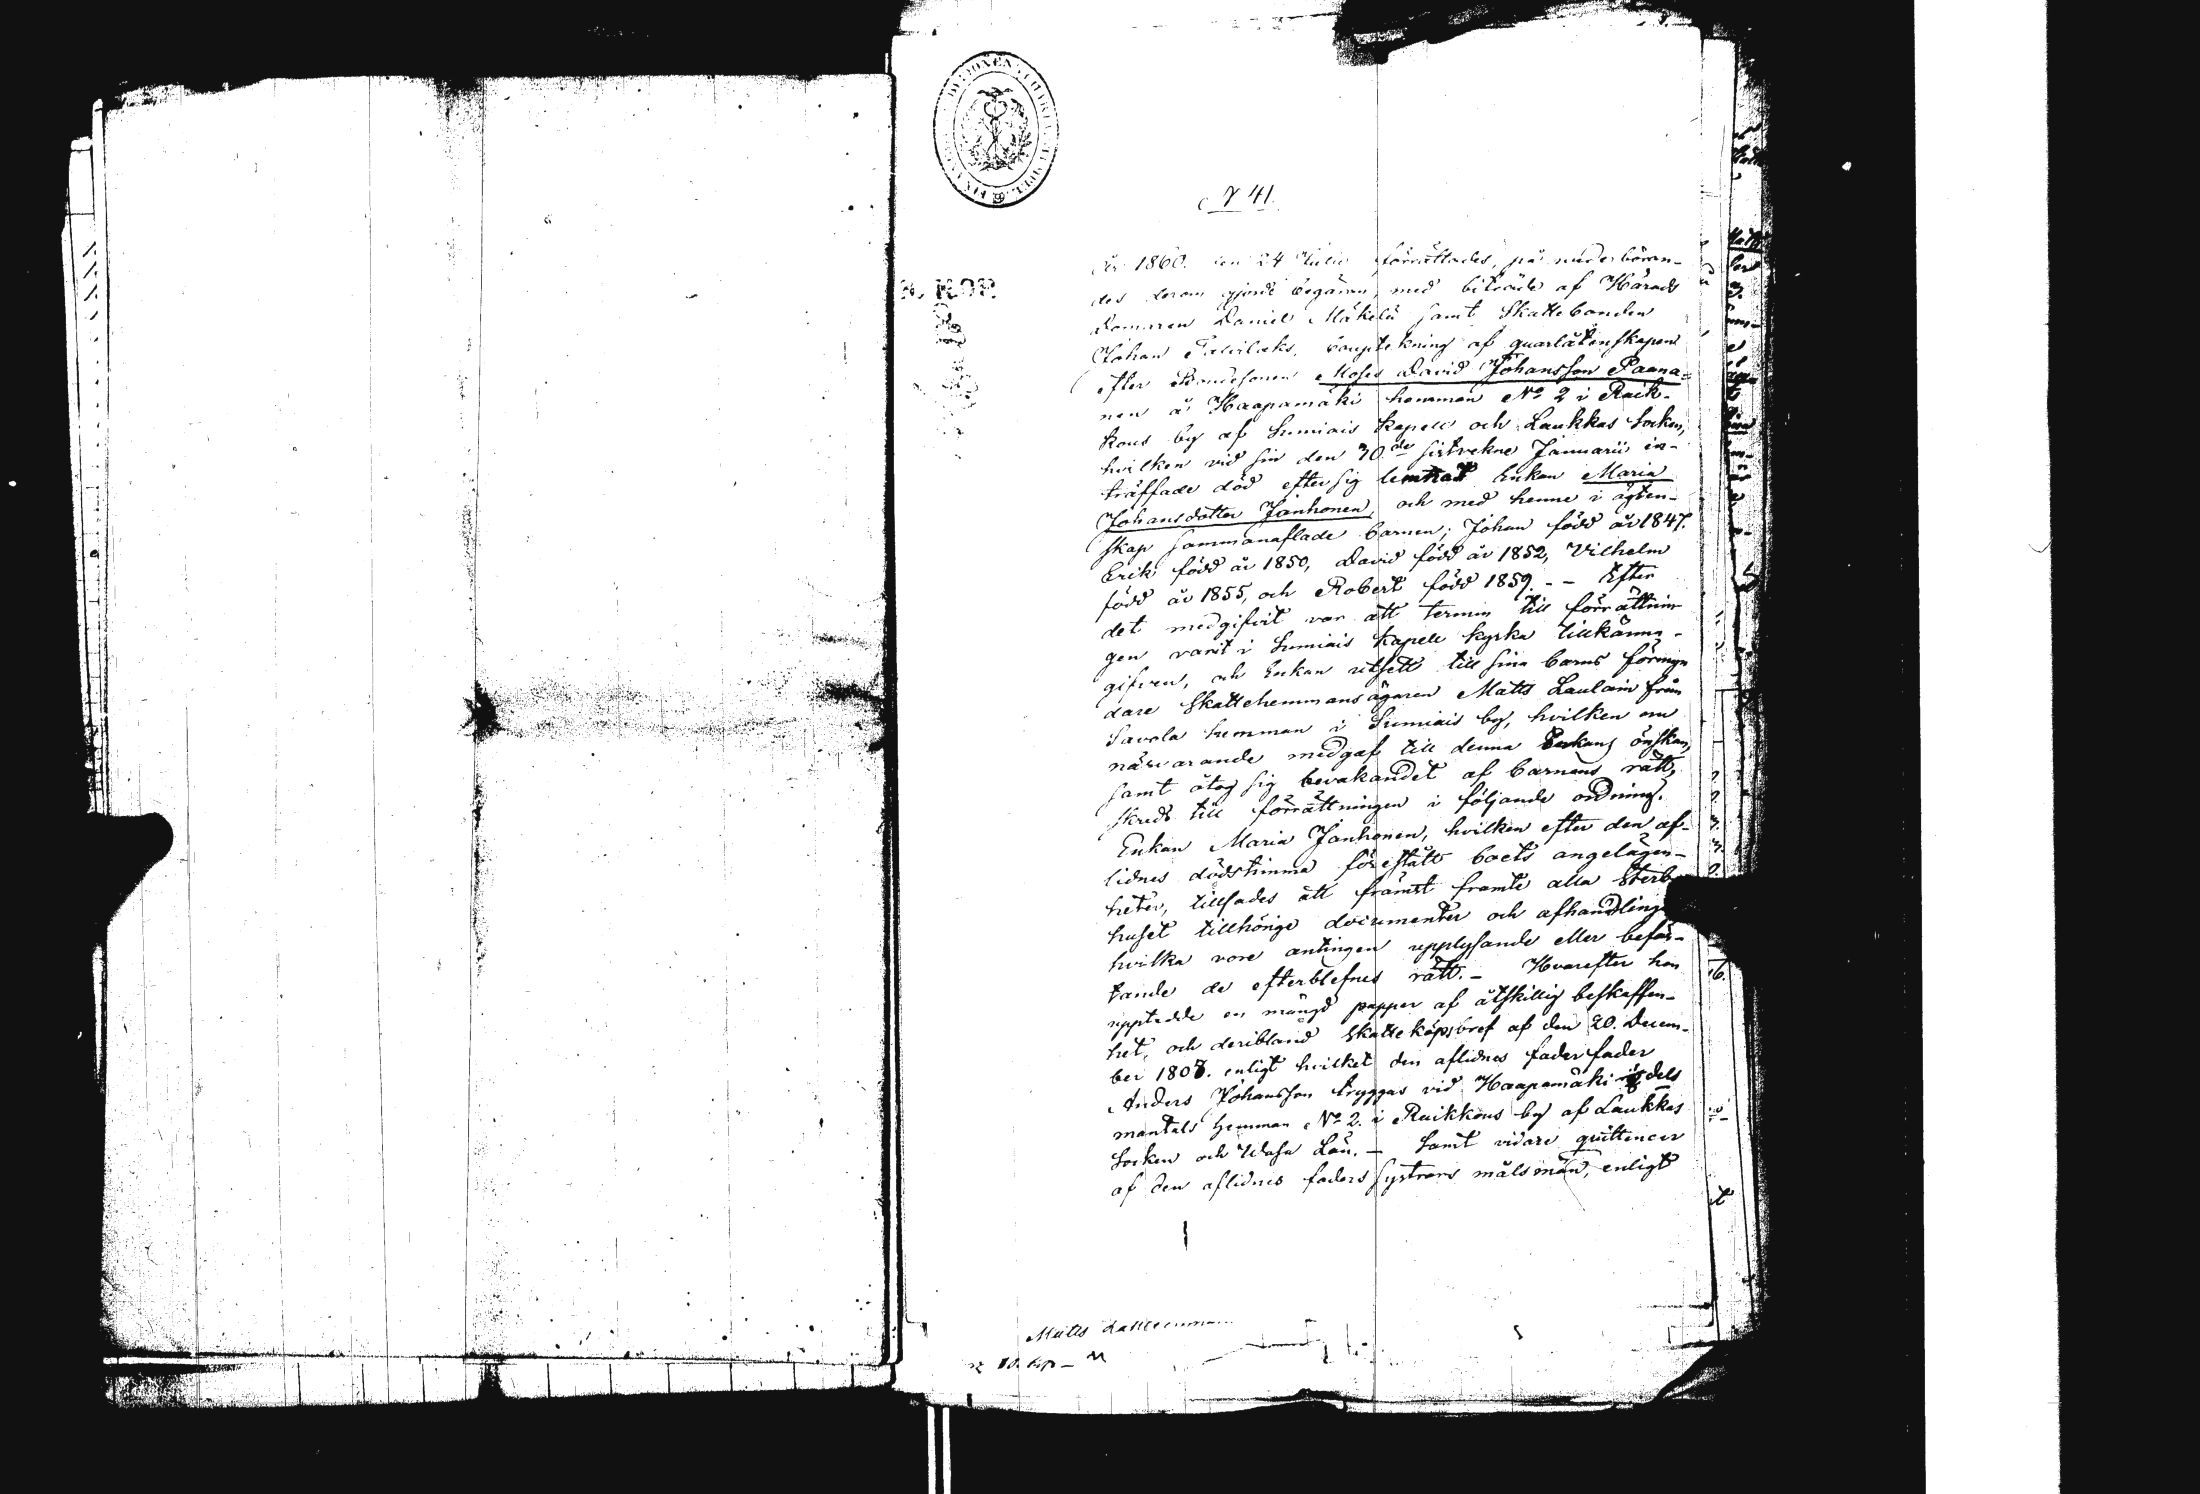 41.
År 1860. den 24 Julii förrättades, på vederböran-
des derom gjorde begäran, med biträde af Härads
Domaren Daniel Mäkelä samt Skattebonden
Johan bouptekning af quarlåtenskapen
efter Bondesonen Moses David Johansson Paana-
nen å Haapamäki hemman No 2 i Ruik-
kous by af Sumiais Kapell och Laukkas Socken,
hvilken vid sin den 30de sistvekne Januarii in-
träffade död efter sig lemnat Enkan Maria
Johansdotter Janhonen, och med henne i ägten-
skap sammanaflade barnen; Johan född år 1847.
Erik född år 1850, David född år 1852, Vilhelm
född år 1855, och Robert född 1859. - - Efter
det medgifvit var att termin till förrättnin-
gen varit i Sumiais Kapell kyrka tillkänna-
gifven, och Enkan utsett till sina barns förmyn
dare Skattehemmansägaren Matts Laulain från
Savola hemman i Sumiais by, hvilken nu
närvarande medgaf till denna Enkans önskan,
samt åtog sig bevakandet af barnens rätt,
skreds till förrättningen i följande ordning.
Enkan Maria Janhonen, hvilken efter den af-
lidnes dödstimma förestått boets angelägen-
heter, tillsades att främst framte alla Sterb
huset tillhörige documenter och afhandling
hvilka vore antingen upplysande eller befäs-
tande de efterblefnes rätt. - Hvarefter hon
upptedde en mängd papper af åtskillig beskaffen-
het, och deribland Skatteköpsbref af den 20. Decem-
ber 1808. enligt hvilket den aflidnes faderfader
Anders Johansson tryggas vid Haapamäki dels
mantals hemman No 2. i Ruikkous by af Laukkas
Socken och Wasa Län. - Samt vidare quittencer
af den aflidnes faders systrars målsmän, enligt
Matts